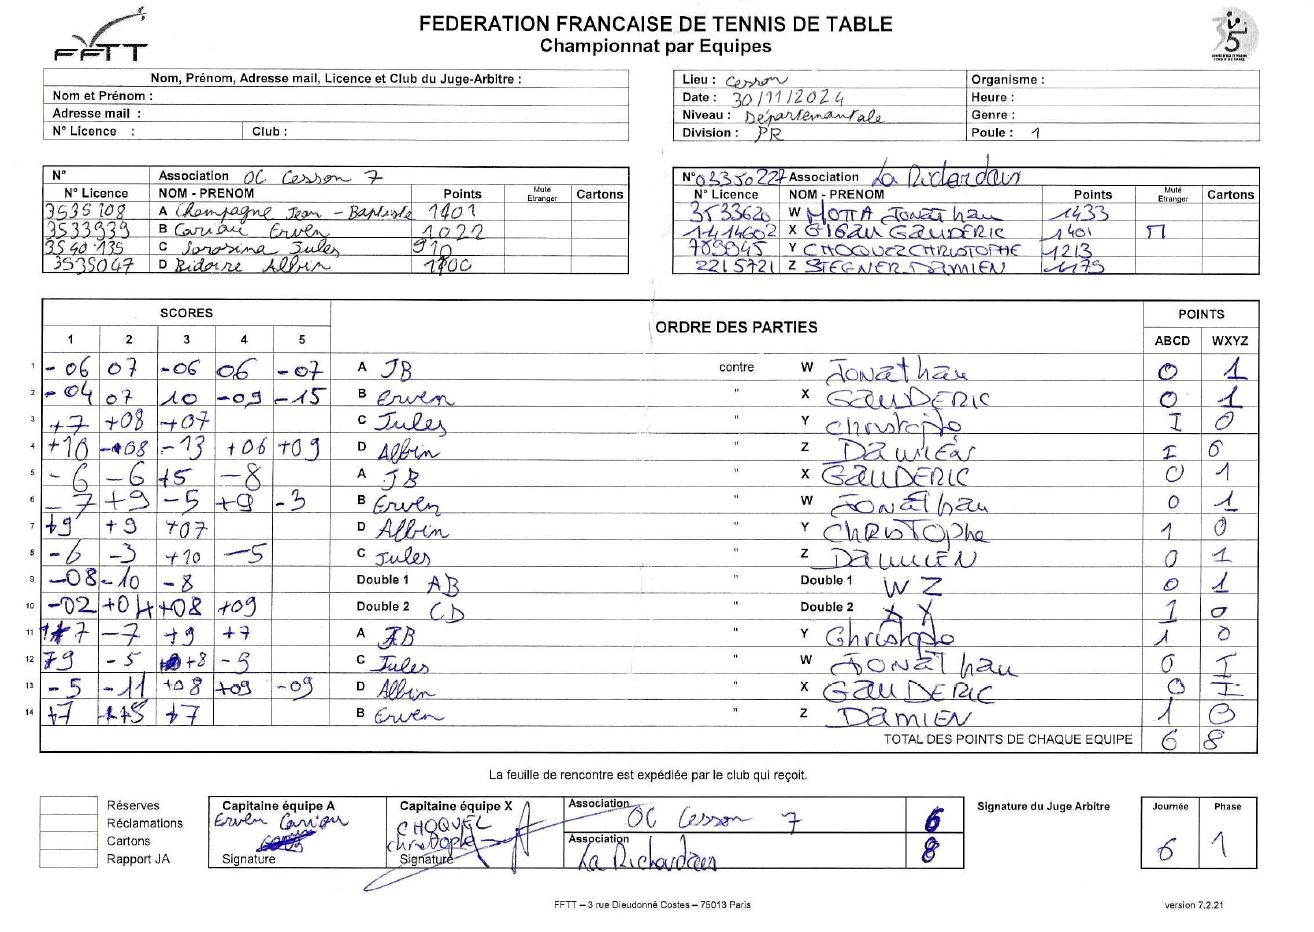 FFTT
FEDERATION FRANCAISE DE TENNIS DE TABLE
Championnat par Equipes
Nom, Prénom, Adresse mail, Licence et Club du Juge-Arbitre :
Nom et Prénom :
Adresse mail :
N° Licence : Club :
Lieu : Cesson Organisme :
Date : 30/11/2024 Heure :
Niveau : Départementale Genre :
Division : PR Poule : 1
N° Association OC Cesson 7
N° Licence NOM - PRENOM Points Muté Etranger Cartons
3535108 A Champagne Jean-Baptiste 1401
3533939 B Cariou Erven 1022
3540135 C Jules 910
3535047 D Bidoire Albin
N° 03350227 Association La Richardais
N° Licence NOM - PRENOM Points Muté Etranger Cartons
3533620 W MOTTA Jonathan 1433
1414602 X GAUDERIC 1401 M
Y CHOQUEL CHRISTOPHE 1213
2215721 Z STEGNER DAMIEN 1175
SCORES ORDRE DES PARTIES POINTS
1 2 3 4 5 ABCD WXYZ
1 -06 07 -06 06 -07 A JB contre W Jonathan 0 1
2 -04 07 10 -09 -15 B Erven " X GAUDERIC 0 1
3 +7 +08 +07 C Jules " Y Christophe I 0
4 +10 -08 -13 +06 +09 D Albin " Z Damien I 0
5 -6 -6 +5 -8 A JB " X GAUDERIC 0 1
6 -7 +9 -5 +9 -3 B Erven " W Jonathan 0 1
7 +9 +9 +07 D Albin " Y CHRISTOPhe 1 0
8 -6 -3 +10 -5 C Jules " Z DAMIEN 0 1
9 -08 -10 -8 Double 1 AB " Double 1 WZ 0 1
10 -02 +04 +08 +09 Double 2 CD " Double 2 XY 1 0
11 +7 -7 +9 +7 A JB " Y Christophe 1 0
12 +9 -5 +8 -9 C Jules " W JONAThan 0 I
13 -5 -11 +08 +09 -09 D Albin " X GAUDERIC 0 I
14 +7 +5 +7 B Erven " Z DAMIEN 1 0
TOTAL DES POINTS DE CHAQUE EQUIPE 6 8
La feuille de rencontre est expédiée par le club qui reçoit.
Réserves
Réclamations
Cartons
Rapport JA
Capitaine équipe A
Erven Cariou
Signature
Capitaine équipe X
CHOQUEL
christophe
Signature
Association OC Cesson 7 6
Association La Richardais 8
Signature du Juge Arbitre
Journée Phase
6 1
FFTT – 3 rue Dieudonné Costes – 75013 Paris
version 7.2.21